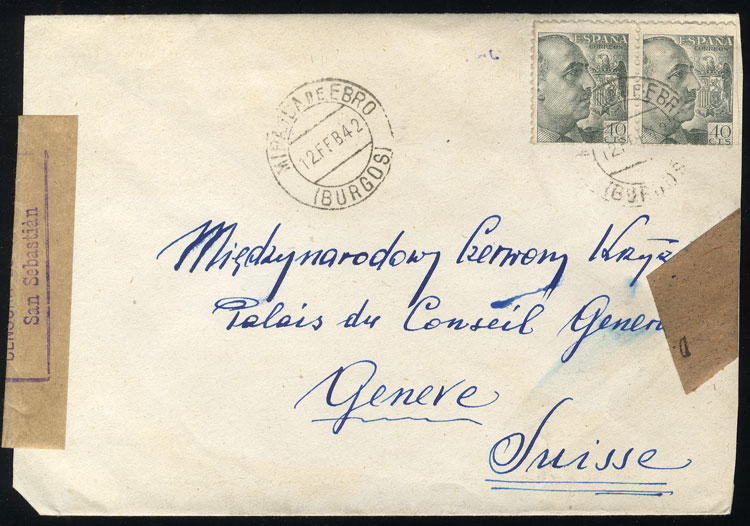 ESPAÑA
CORREOS
40
CTS
ESPAÑA
CORREOS
40
CTS
MIRANDA DE EBRO
12.FEB42
(BURGOS)
DE EBR
12.FE
(BURGOS
San Sebastián
Międzynarodowy Czerwony Krzyż
Palais du Conseil Gener
Geneve
Suisse
D